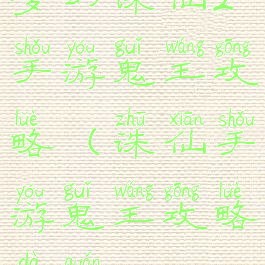 梦幻诛仙2
shǒu yóu guǐ wáng gōng
手游鬼王攻
lüè zhū xiān shǒu
略（诛仙手
yóu guǐ wáng gōng lüè
游鬼王攻略
dà quán